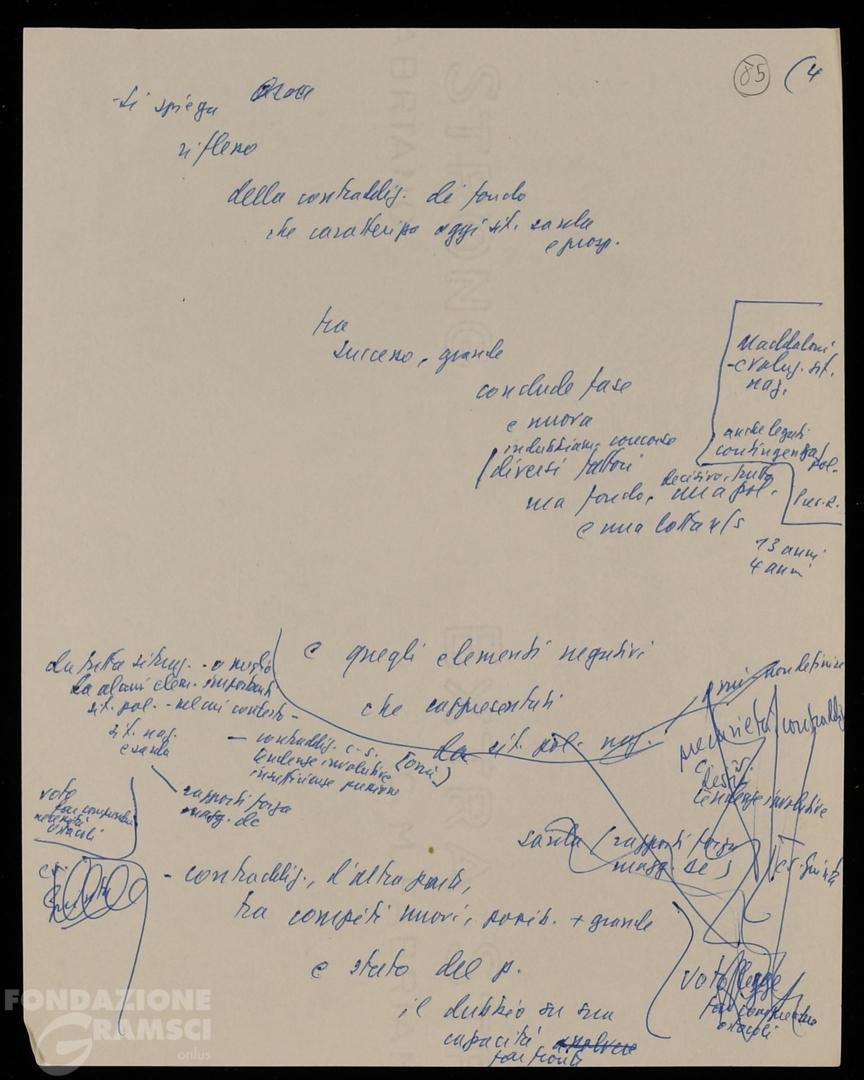 85 (4
- si spiega
riflesso
della contraddiz. di fondo
che caratterizza oggi sit. sarda
e prosp.
tra
successo, grande
conclude fase
e nuova
indubbiam. concorso
diversi fattori
ma fondo, decisivo, frutto una pol.
e una lotta
Maddaloni
- evoluz. sit.
naz.
anche legati
contingenza pol.
13 anni
4 anni
e quegli elementi negativi
che rappresentati
da sit. pol. naz.
da tutta situaz. - o meglio
da alcuni elem. importanti
sit. pol. - nel cui contesto -
sit. naz.
e sarda
- contraddiz. c.-s.
tendenze involutive
insufficiense
rapporti forza
magg. dc
voto
far comprendere
necessità
ostacoli
non definire
precarietà contraddiz.
e
tendenze involutive
sarda (rapporti forza
magg. dc)
cs. Giunta
- contraddiz., d'altra parte,
tra compiti nuovi, possib. + grande
e stato del p.
il dubbio su sua
capacità
far fronte
voto legge
far comprendere
ostacoli
FONDAZIONE
GRAMSCI
onlus